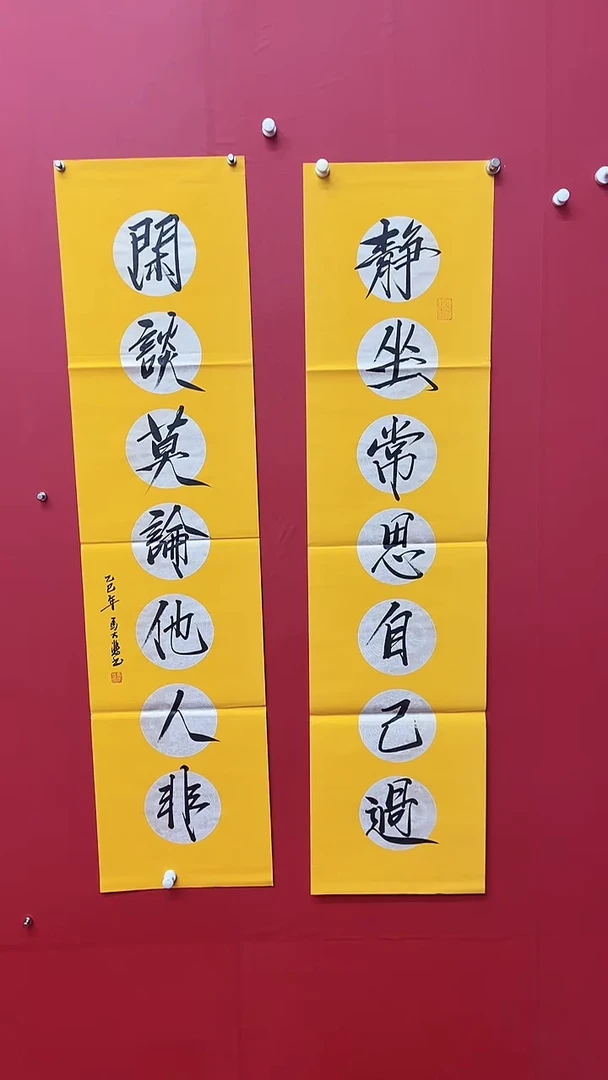 靜坐常思自己過
閑談莫論他人非
乙巳年